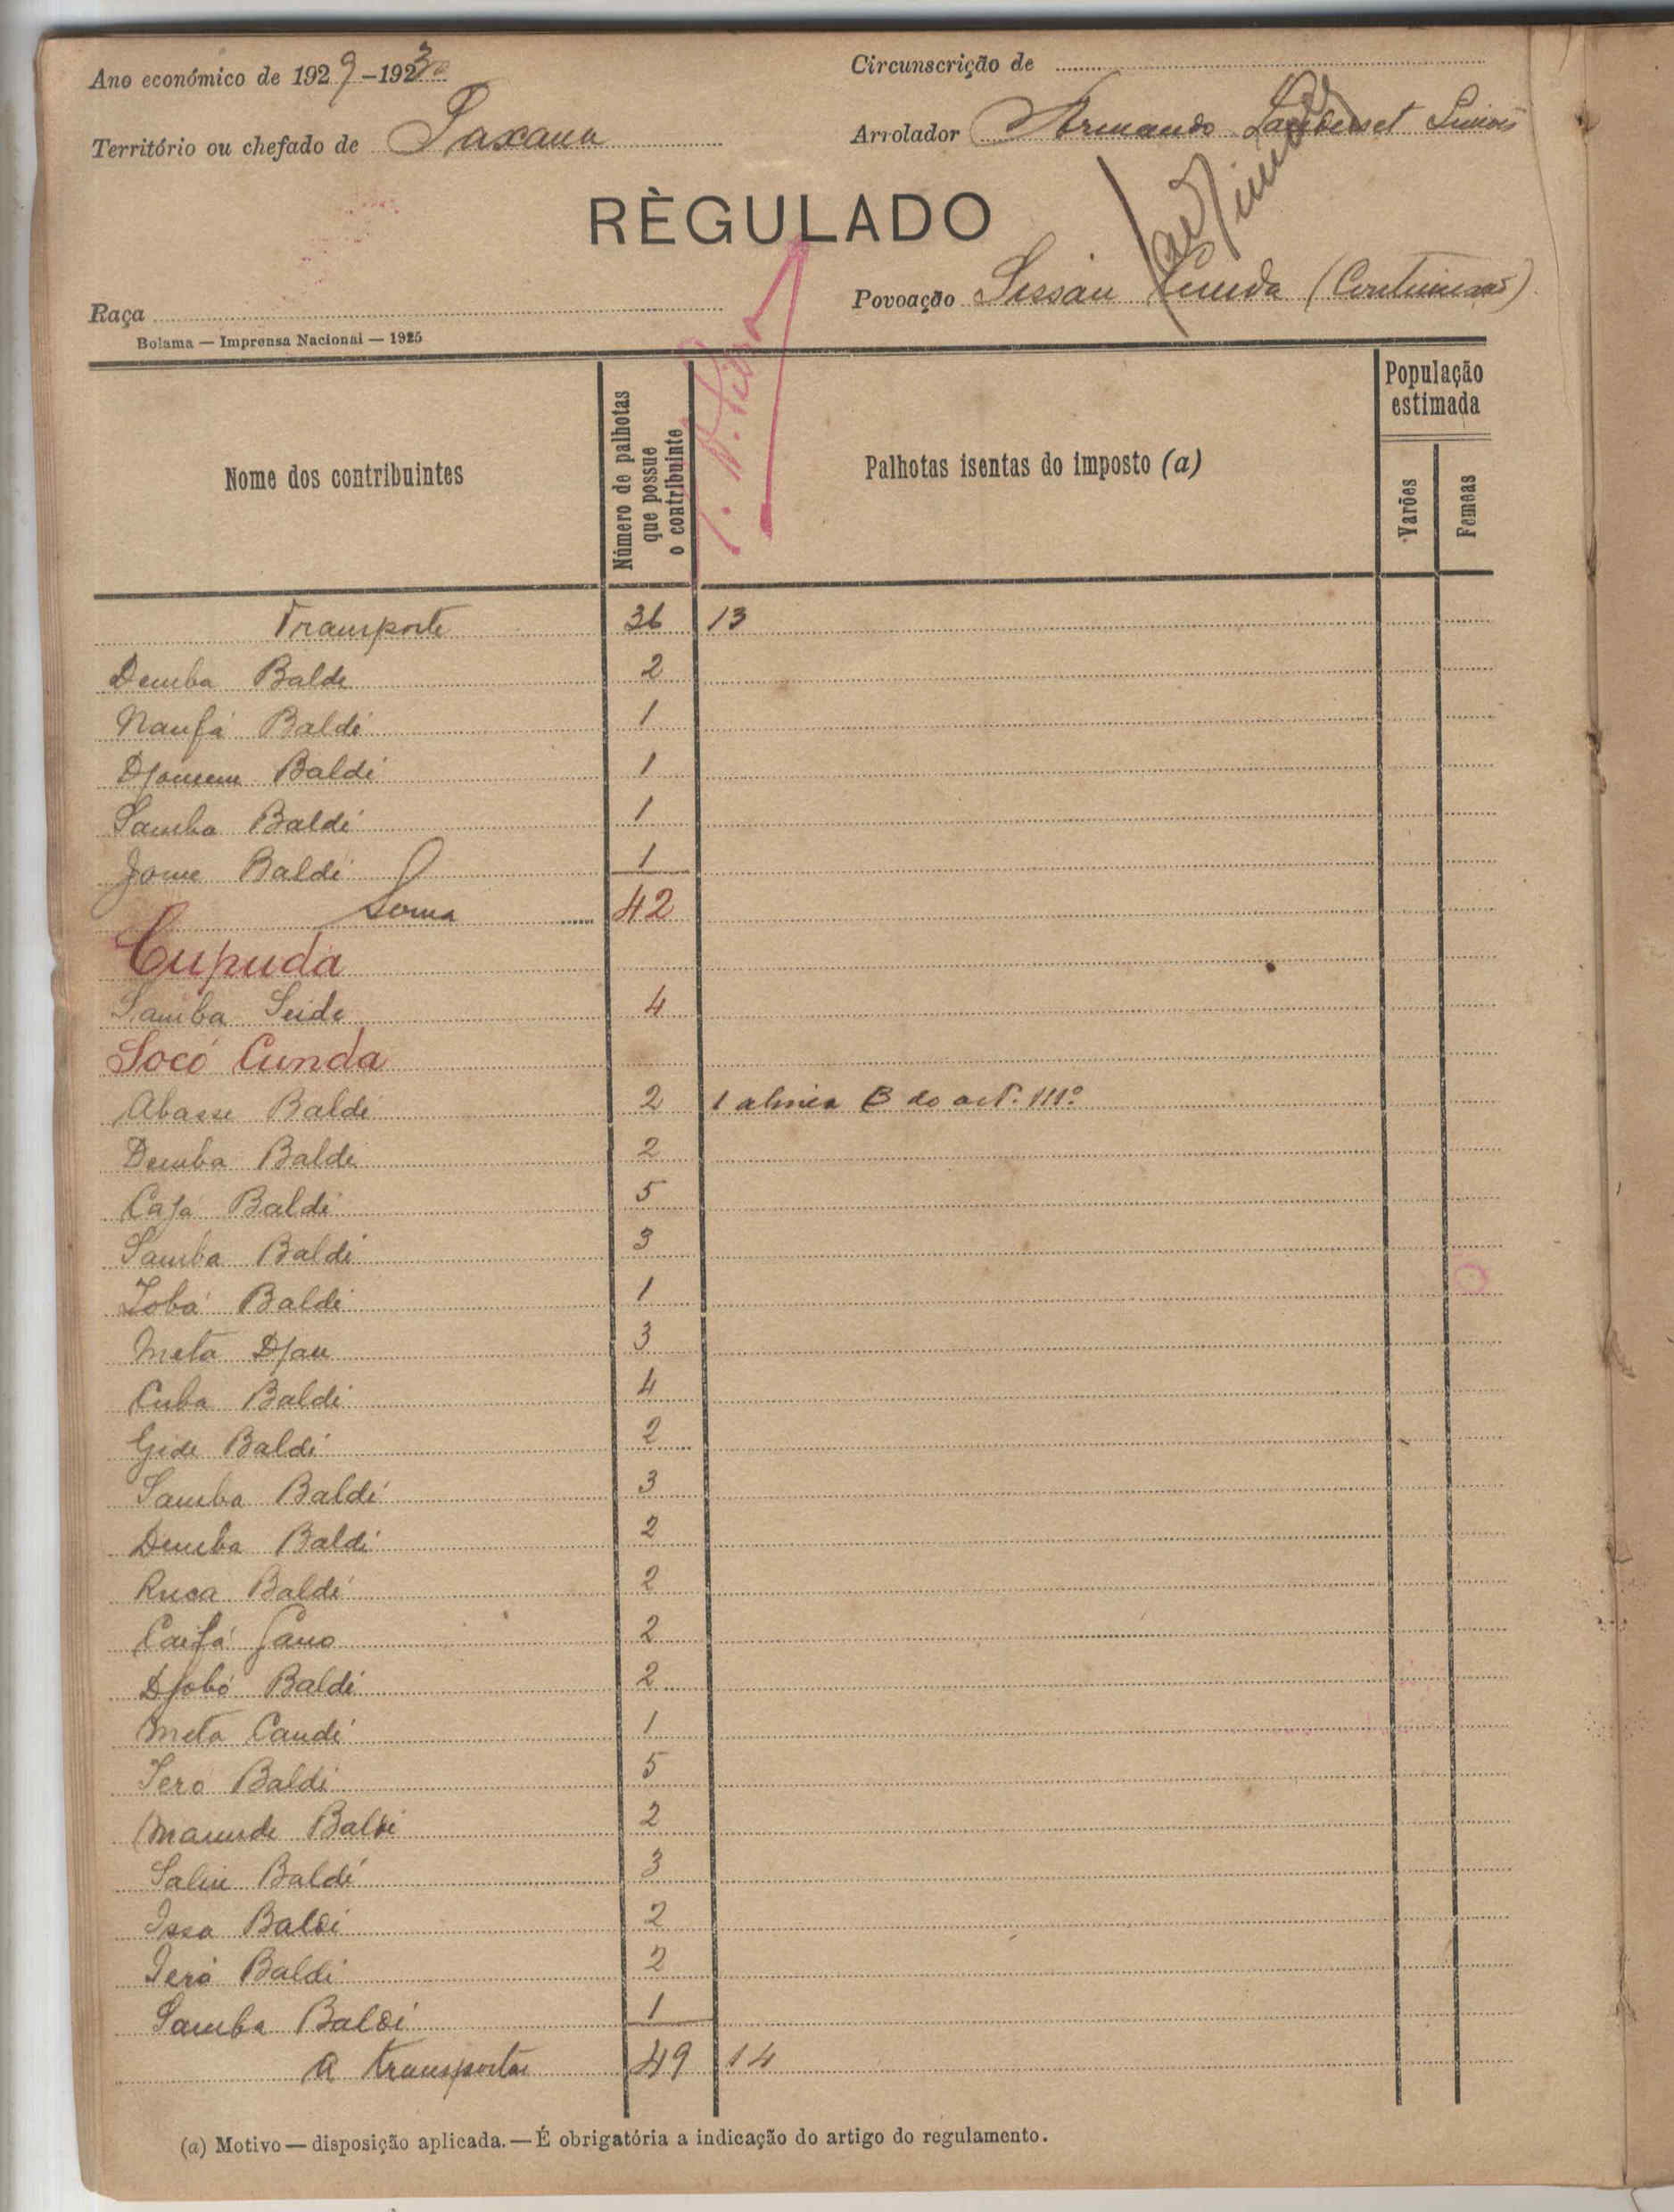 Ano económico de 1929-1930
Circunscrição de
Território ou chefado de
Arrolador Armando Landerset Simões
RÈGULADO
Raça
Povoação Sissau Cunda (Continuação)
Bolama — Imprensa Nacional — 1925
Nome dos contribuintes
Número de palhotas que possue o contribuinte
Palhotas isentas do imposto (a)
População estimada
Varões
Femeas
Transporte 36 13
Demba Baldé 2
Naufá Baldé 1
Baldé 1
Samba Baldé 1
Jome Baldé 1
Soma 42
Cupuda
Samba Seide 4
Socó Cunda
Abasse Baldé 2 1 alinea B do art. 111º
Demba Baldé 2
Baldé 5
Samba Baldé 3
Baldé 1
Meta Djau 3
Cuba Baldé 4
Gide Baldé 2
Samba Baldé 3
Demba Baldé 2
Baldé 2
Gano 2
Djobó Baldé 2
Meta Candé 1
Baldé 5
Baldé 2
Saliu Baldé 3
Issa Baldé 2
Baldé 2
Samba Baldé 1
A transportar 49 14
(a) Motivo — disposição aplicada. — É obrigatória a indicação do artigo do regulamento.